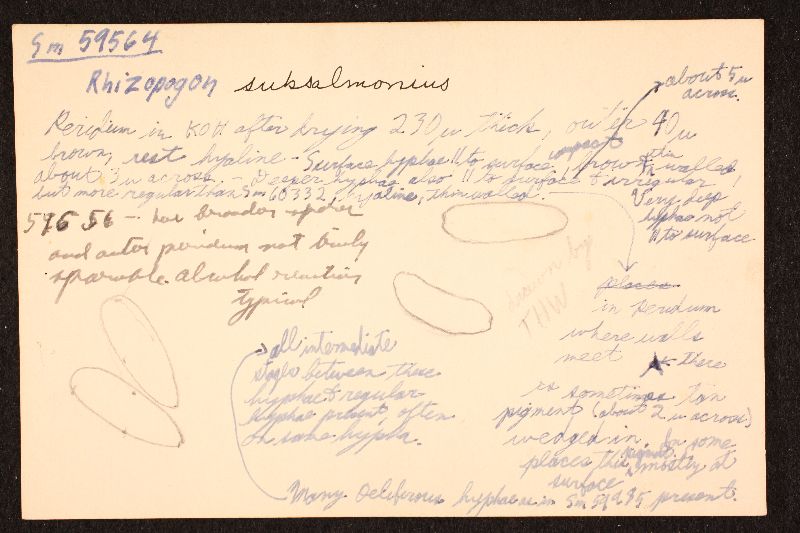 Sm 59564
Rhizopogon subsalmonius
about 5 u
across.
Peridium in KOH after drying 230 u thick, outer 40 u
brown, rest hyaline - Surface hyphae || to surface, compact, brown, thin walled,
about 3 u across. - Deeper hyphae also || to surface & irregular,
but more regular than Sm 60332, hyaline, thin walled.
Very deep
hyphae not
|| to surface
59656 - has broader spores
and outer peridium not truly
separable. alcohol reaction
typical
drawn by
THW
places
in peridium
where walls
meet there
is sometimes tan
pigment (about 2 u across)
wedged in. In some
places this pigment mostly at
surface
all intermediate
stages between these
hyphae & regular
hyphae present, often
on same hypha.
Many hyphae as in Sm present.